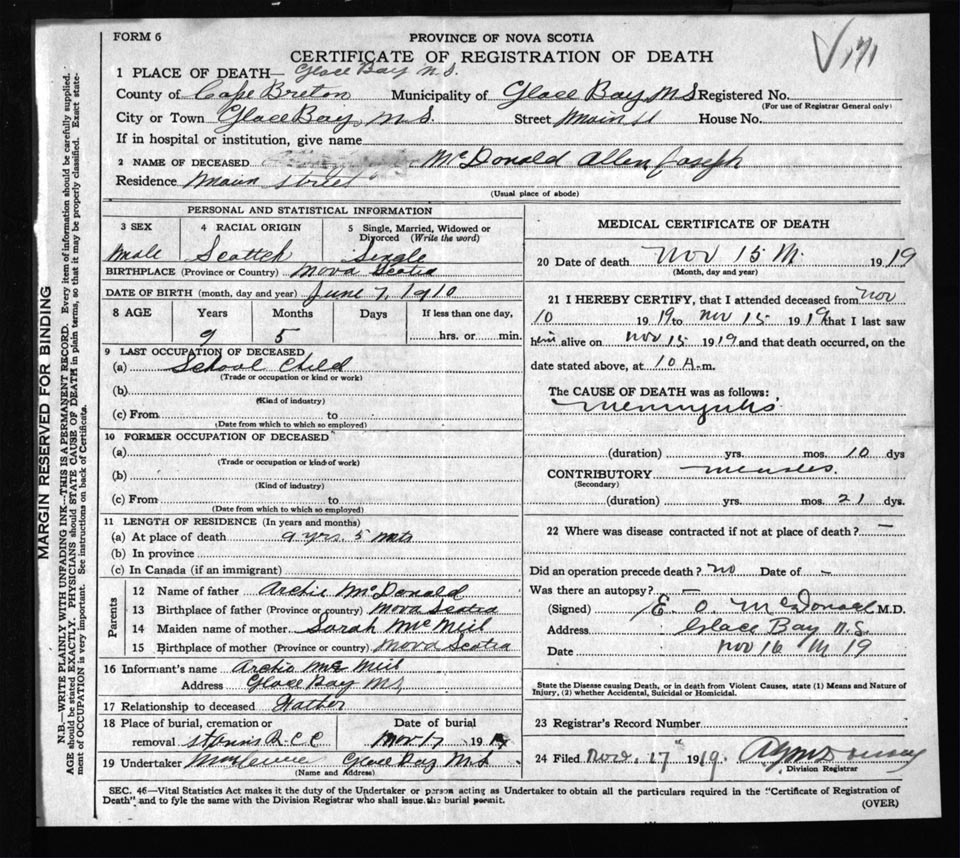 FORM 6
PROVINCE OF NOVA SCOTIA
CERTIFICATE OF REGISTRATION OF DEATH
1 PLACE OF DEATH— Glace Bay N.S.
County of Cape Breton Municipality of Glace Bay N S Registered No.
(For use of Registrar General only)
City or Town Glace Bay, N.S. Street Main St House No.
If in hospital or institution, give name
2 NAME OF DECEASED McDonald Allen Joseph
Residence Main Street
(Usual place of abode)
PERSONAL AND STATISTICAL INFORMATION
3 SEX 4 RACIAL ORIGIN 5 Single, Married, Widowed or Divorced (Write the word)
Male Scottch Single
BIRTHPLACE (Province or Country) Nova Scotia
DATE OF BIRTH (month, day and year) June 7, 1910
8 AGE Years Months Days If less than one day,
9 5 hrs. or min.
9 LAST OCCUPATION OF DECEASED
(a) School Child
(Trade or occupation or kind or work)
(b)
(Kind of industry)
(c) From to
(Date from which to which so employed)
10 FORMER OCCUPATION OF DECEASED
(a)
(Trade or occupation or kind of work)
(b)
(Kind of industry)
(c) From to
(Date from which to which so employed)
11 LENGTH OF RESIDENCE (In years and months)
(a) At place of death 9 yrs. 5 mts
(b) In province
(c) In Canada (if an immigrant)
Parents
12 Name of father Archie McDonald
13 Birthplace of father (Province or country) Nova Scotia
14 Maiden name of mother Sarah McNeil
15 Birthplace of mother (Province or country) Nova Scotia
16 Informant's name Archie Mc Neil
Address Glace Bay N S,
17 Relationship to deceased Father
18 Place of burial, cremation or Date of burial
removal St Anns R.C.C Nov 17 1919
19 Undertaker Glace Bay N.S
(Name and Address)
MEDICAL CERTIFICATE OF DEATH
20 Date of death Nov 15 1919
(Month, day and year)
21 I HEREBY CERTIFY, that I attended deceased from Nov
10 1919 to Nov 15 1919 that I last saw
him alive on Nov 15 1919 and that death occurred, on the
date stated above, at 10 A.m.
The CAUSE OF DEATH was as follows:
Meningitis
(duration) yrs. mos. 10 dys
CONTRIBUTORY measles.
(Secondary)
(duration) yrs. mos. 21 dys.
22 Where was disease contracted if not at place of death? —
Did an operation precede death? no Date of –
Was there an autopsy? –
(Signed) E. O. McDonald M.D.
Address Glace Bay N.S.
Date Nov 16 19
State the Disease causing Death, or in death from Violent Causes, state (1) Means and Nature of
Injury, (2) whether Accidental, Suicidal or Homicidal.
23 Registrar's Record Number
24 Filed Nov. 17th 1919.
Division Registrar
SEC. 46—Vital Statistics Act makes it the duty of the Undertaker or person acting as Undertaker to obtain all the particulars required in the "Certificate of Registration of
Death" and to fyle the same with the Division Registrar who shall issue the burial permit.
(OVER)
MARGIN RESERVED FOR BINDING
N.B.—WRITE PLAINLY WITH UNFADING INK—THIS IS A PERMANENT RECORD. Every item of information should be carefully supplied.
AGE should be stated EXACTLY. PHYSICIANS should STATE CAUSE OF DEATH in plain terms, so that it may be properly classified. Exact state-
ment of OCCUPATION is very important. See instructions on back of Certificate.